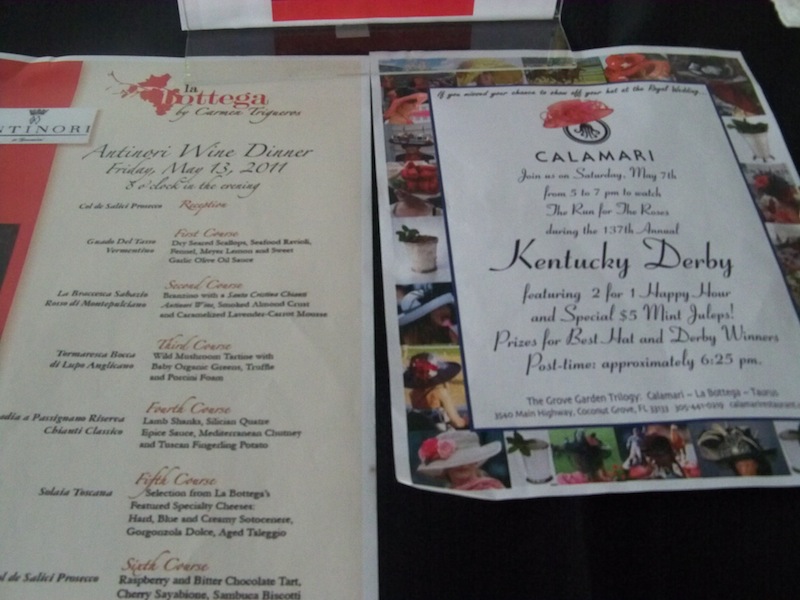 la
Bottega
by Carmen Trigueros
NTINORI
Antinori Wine Dinner
Friday, May 13, 2011
8 o'clock in the evening
Col de Salici Prosecco Reception
First Course
Guado Del Tasso
Vermentino
Dry Seared Scallops, Seafood Ravioli,
Fennel, Meyer Lemon and Sweet
Garlic Olive Oil Sauce
Second Course
La Braccesca Sabazio
Rosso di Montepulciano
Branzino with a Santa Cristina Chianti
Antinori Wine, Smoked Almond Crust
and Caramelized Lavender-Carrot Mousse
Third Course
Tormaresca Bocca
di Lupo Anglicano
Wild Mushroom Tartine with
Baby Organic Greens, Truffle
and Porcini Foam
Fourth Course
odia a Passignano Riserva
Chianti Classico
Lamb Shanks, Silician Quatre
Epice Sauce, Mediterranean Chutney
and Tuscan Fingerling Potato
Fifth Course
Solaia Toscana
Selection from La Bottega's
Featured Specialty Cheeses:
Hard, Blue and Creamy Sotocenere,
Gorgonzola Dolce, Aged Taleggio
Sixth Course
ol de Salici Prosecco
Raspberry and Bitter Chocolate Tart,
Cherry Sayabione, Sambuca Biscotti
If you missed your chance to show off your hat at the Royal Wedding...
CALAMARI
Join us on Saturday, May 7th
from 5 to 7 pm to watch
The Run for The Roses
during the 137th Annual
Kentucky Derby
featuring 2 for 1 Happy Hour
and Special $5 Mint Juleps!
Prizes for Best Hat and Derby Winners
Post-time: approximately 6:25 pm.
The Grove Garden Trilogy: Calamari – La Bottega – Taurus
3540 Main Highway, Coconut Grove, FL 33133 305-441-0219 calamarirestaurant.c